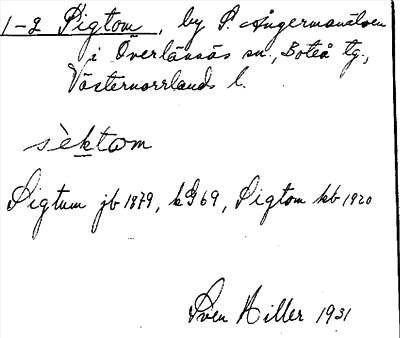 1-2 Sigtom, by S. Ångermanälven
i Överlännäs sn., Boteå tg.,
Västernorrlands l.
sèktɷm
Sigtum jb 1879, kG 69, Sigtom kb 1920
Sven Hiller 1931